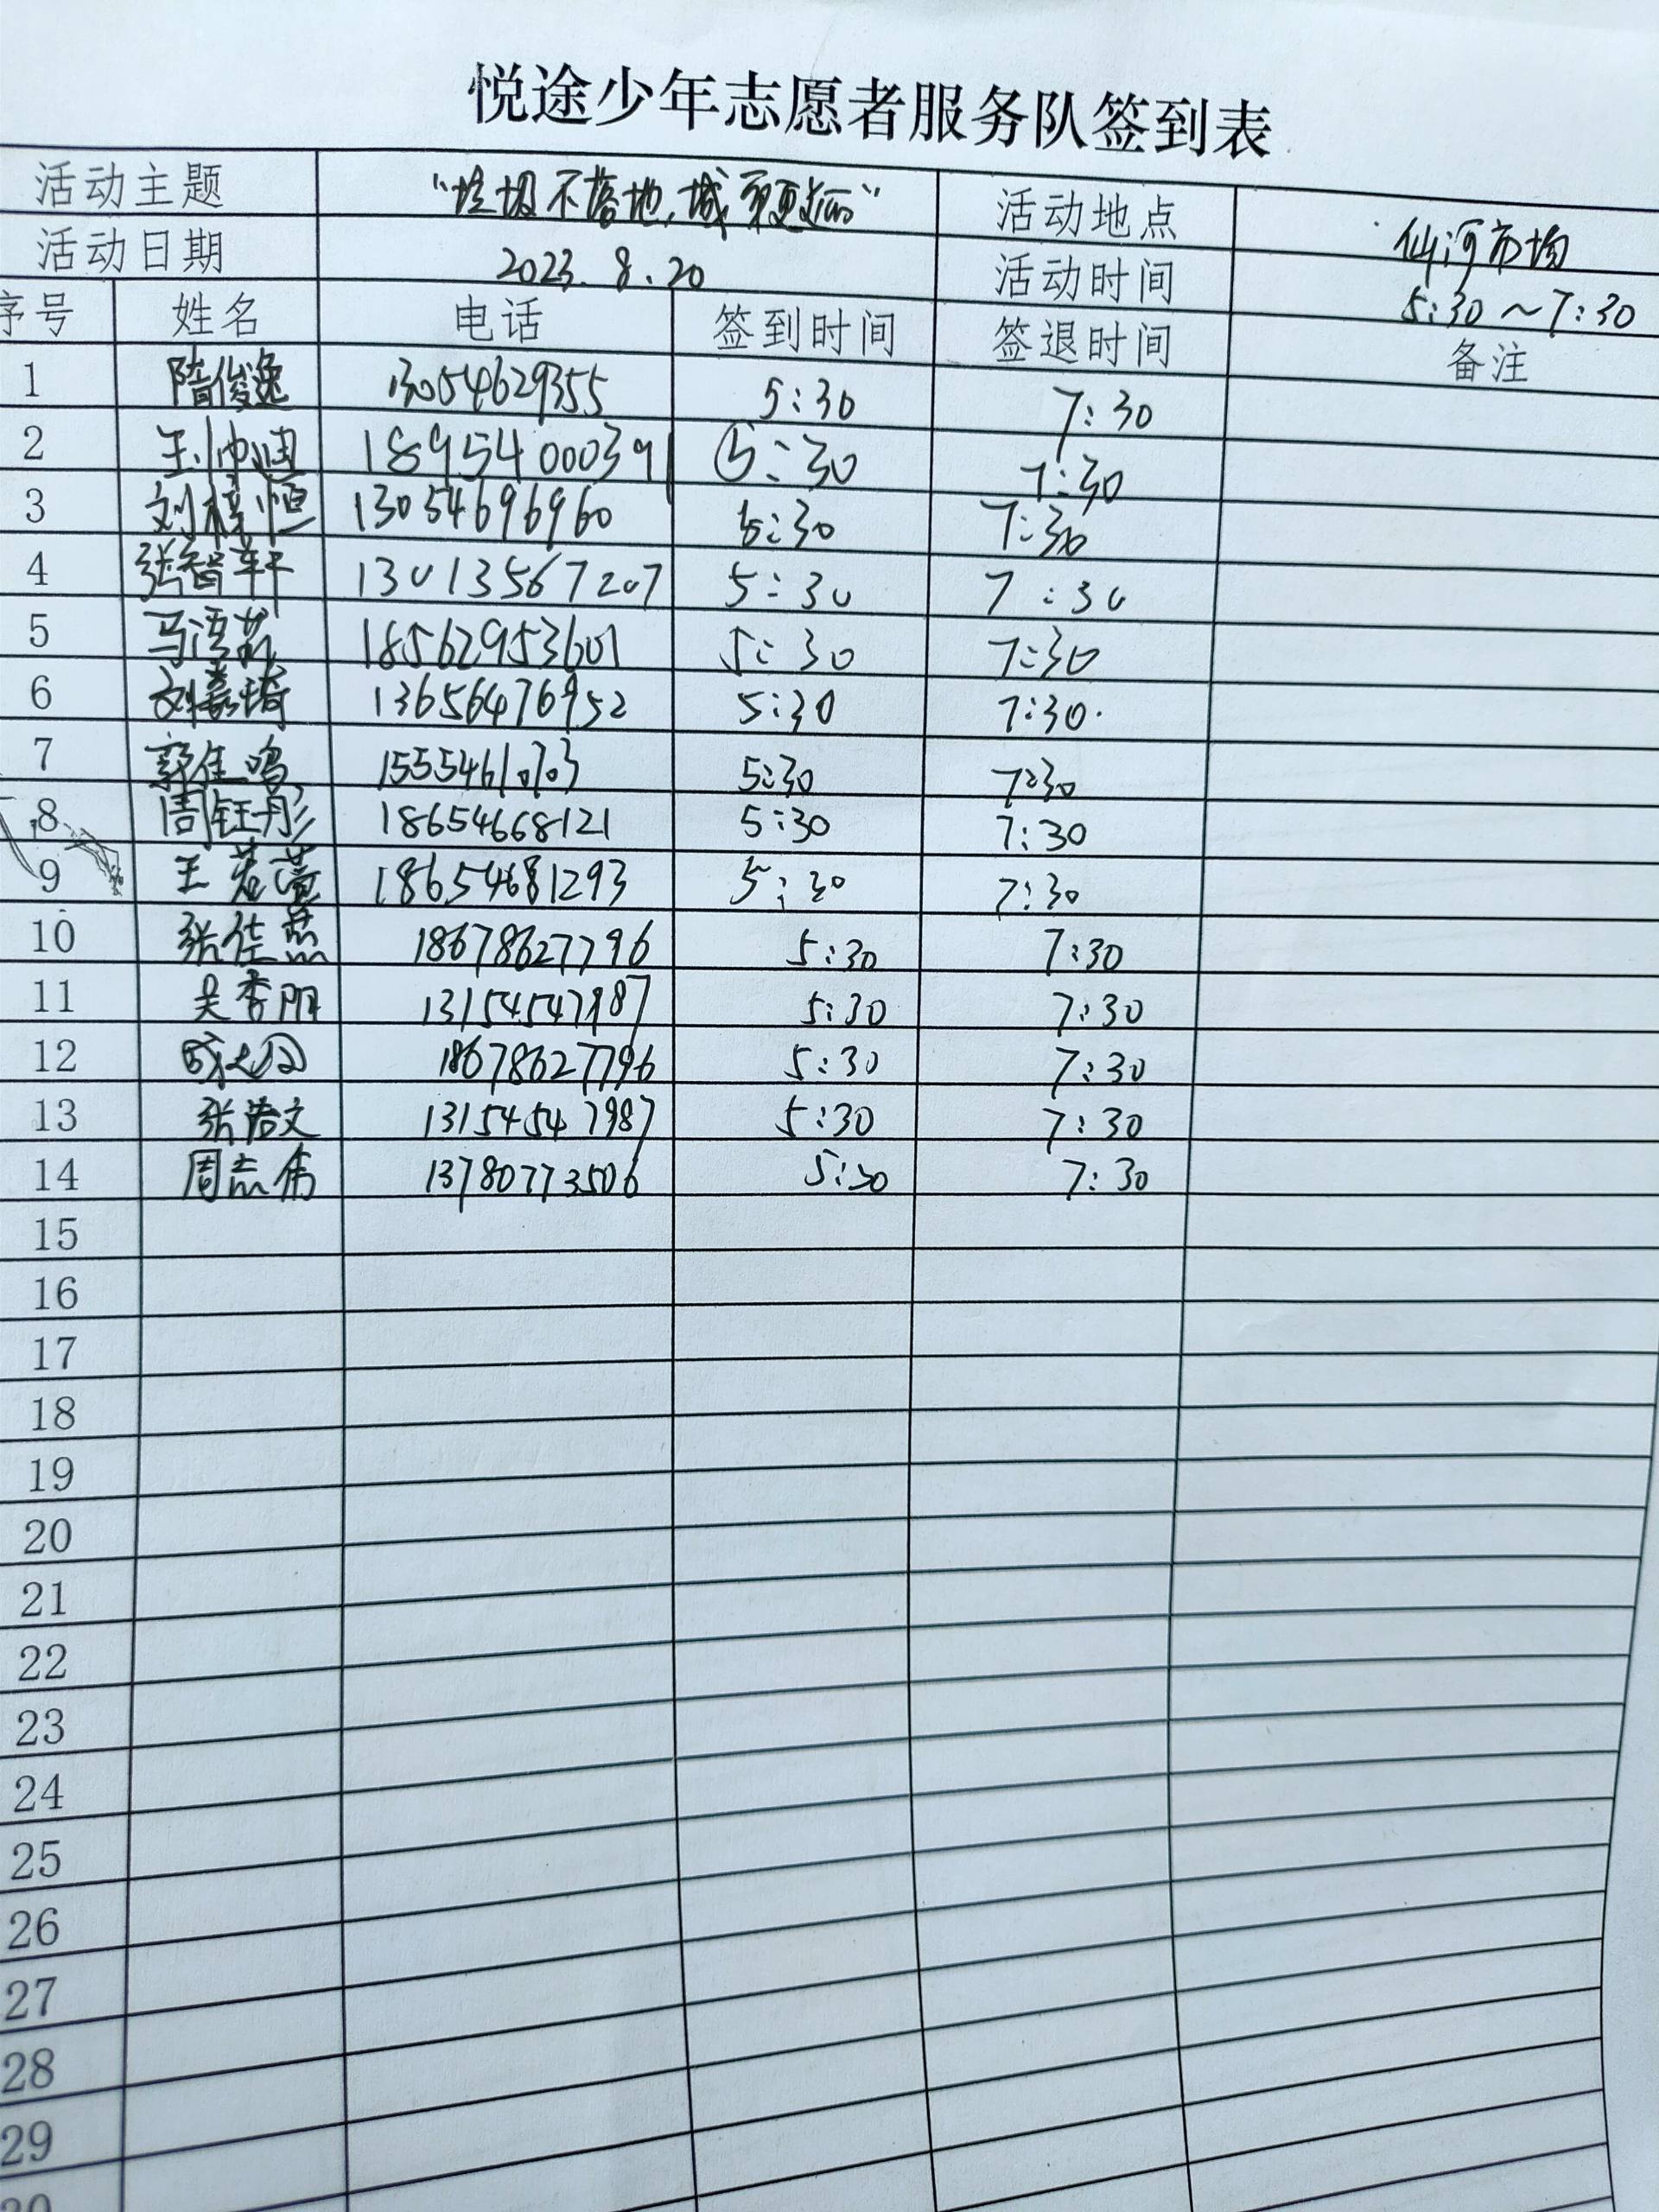 悦途少年志愿者服务队签到表
活动主题 "垃圾不落地,城市更 活动地点 仙河市场
活动日期 2023.8.20 活动时间 5:30~7:30
序号 姓名 电话 签到时间 签退时间 备注
1 隋俊逸 13054629355 5:30 7:30
2 王 18954000391 5:30 7:30
3 刘梓恒 13054696960 5:30 7:30
4 张智轩 13013567207 5:30 7:30
5 马 18562953601 5:30 7:30
6 刘嘉琦 13656476952 5:30 7:30
7 郭佳鸣 15554610703 5:30 7:30
8 周钰彤 18654668121 5:30 7:30
9 王若萱 18654681293 5:30 7:30
10 张佳燕 18678627796 5:30 7:30
11 吴李阳 13154547987 5:30 7:30
12 18678627796 5:30 7:30
13 张浩文 13154547987 5:30 7:30
14 周志伟 13780773506 5:30 7:30
15
16
17
18
19
20
21
22
23
24
25
26
27
28
29
30